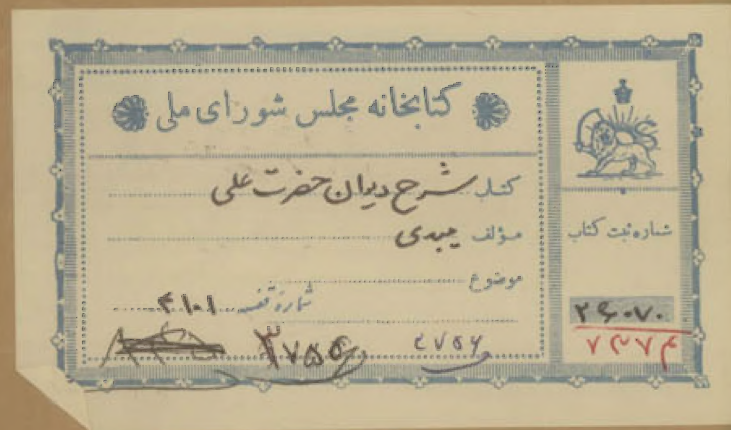 کتابخانه مجلس شورای ملی
کتاب شرح دیوان حضرت علی
مؤلف میبدی
موضوع
شماره قفسه ۴۱۰۱
شماره ثبت کتاب
۲۶۰۷۰
۷۳۷۴